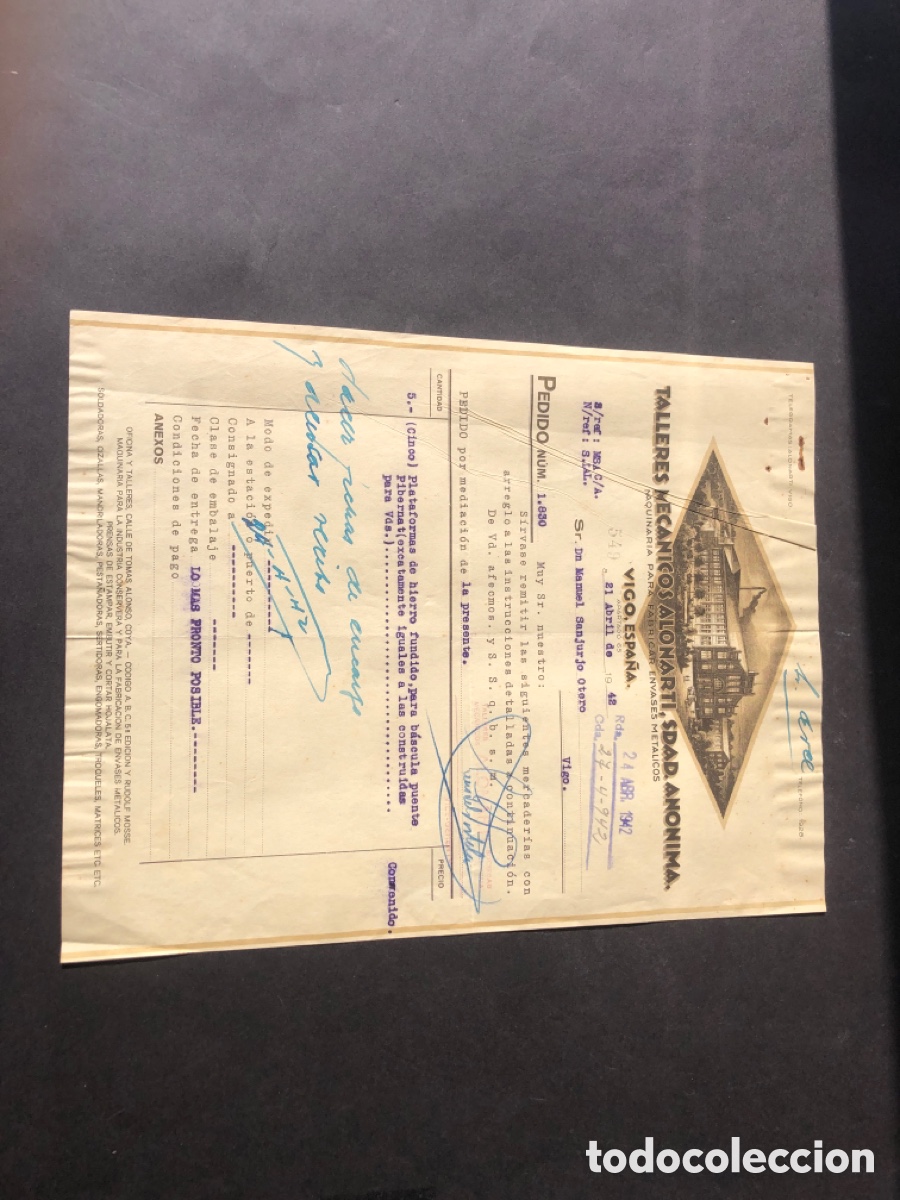 TELEGRAMAS: ALONARTI-VIGO
TELÉFONO
TALLERES MECANICOS ALONARTI, SDAD. ANONIMA.
MAQUINARIA PARA FABRICAR ENVASES METALICOS
VIGO.ESPAÑA.
APARTADO 65
549
21 Abril de 1942
Rda. 24 ABR. 1942
Cda. 27-4-942
S/ref: MSA C/A.
N/ref: S.AL.
Sr. Dn Manuel Sanjurjo Otero
Vigo.
PEDIDO NÚM. 1.830
Muy Sr. nuestro:
Sírvase remitir las siguientes mercaderías con
arreglo a las instrucciones detalladas a continuación.
De Vd. afecmos. y S. S. q. b. s. m.
PEDIDO por mediación de la presente.
CANTIDAD
PRECIO
5.- (cinco) Plataformas de hierro fundido, para báscula puente
Pibernat (excatamente iguales a las construidas
para Vds.)
Convenido.
Hacer fichas de encargo
y acusar recibo
Modo de expedir
A la estación o puerto de
Consignado a
Clase de embalaje
Fecha de entrega LO MAS PRONTO POSIBLE.
Condiciones de pago
ANEXOS
OFICINA Y TALLERES, CALLE DE TOMAS ALONSO, COYA. — CODIGO A. B. C. 5ª EDICION Y RUDOLF MOSSE
MAQUINARIA PARA LA INDUSTRIA CONSERVERA Y PARA LA FABRICACION DE ENVASES METALICOS.
PRENSAS DE ESTAMPAR, EMBUTIR Y CORTAR HOJALATA.
SOLDADORAS, CIZALLAS, MANDRILADORAS, PESTAÑADORAS, SERTIDORAS, ENGOMADORAS, TROQUELES, MATRICES ETC. ETC.
todocoleccion